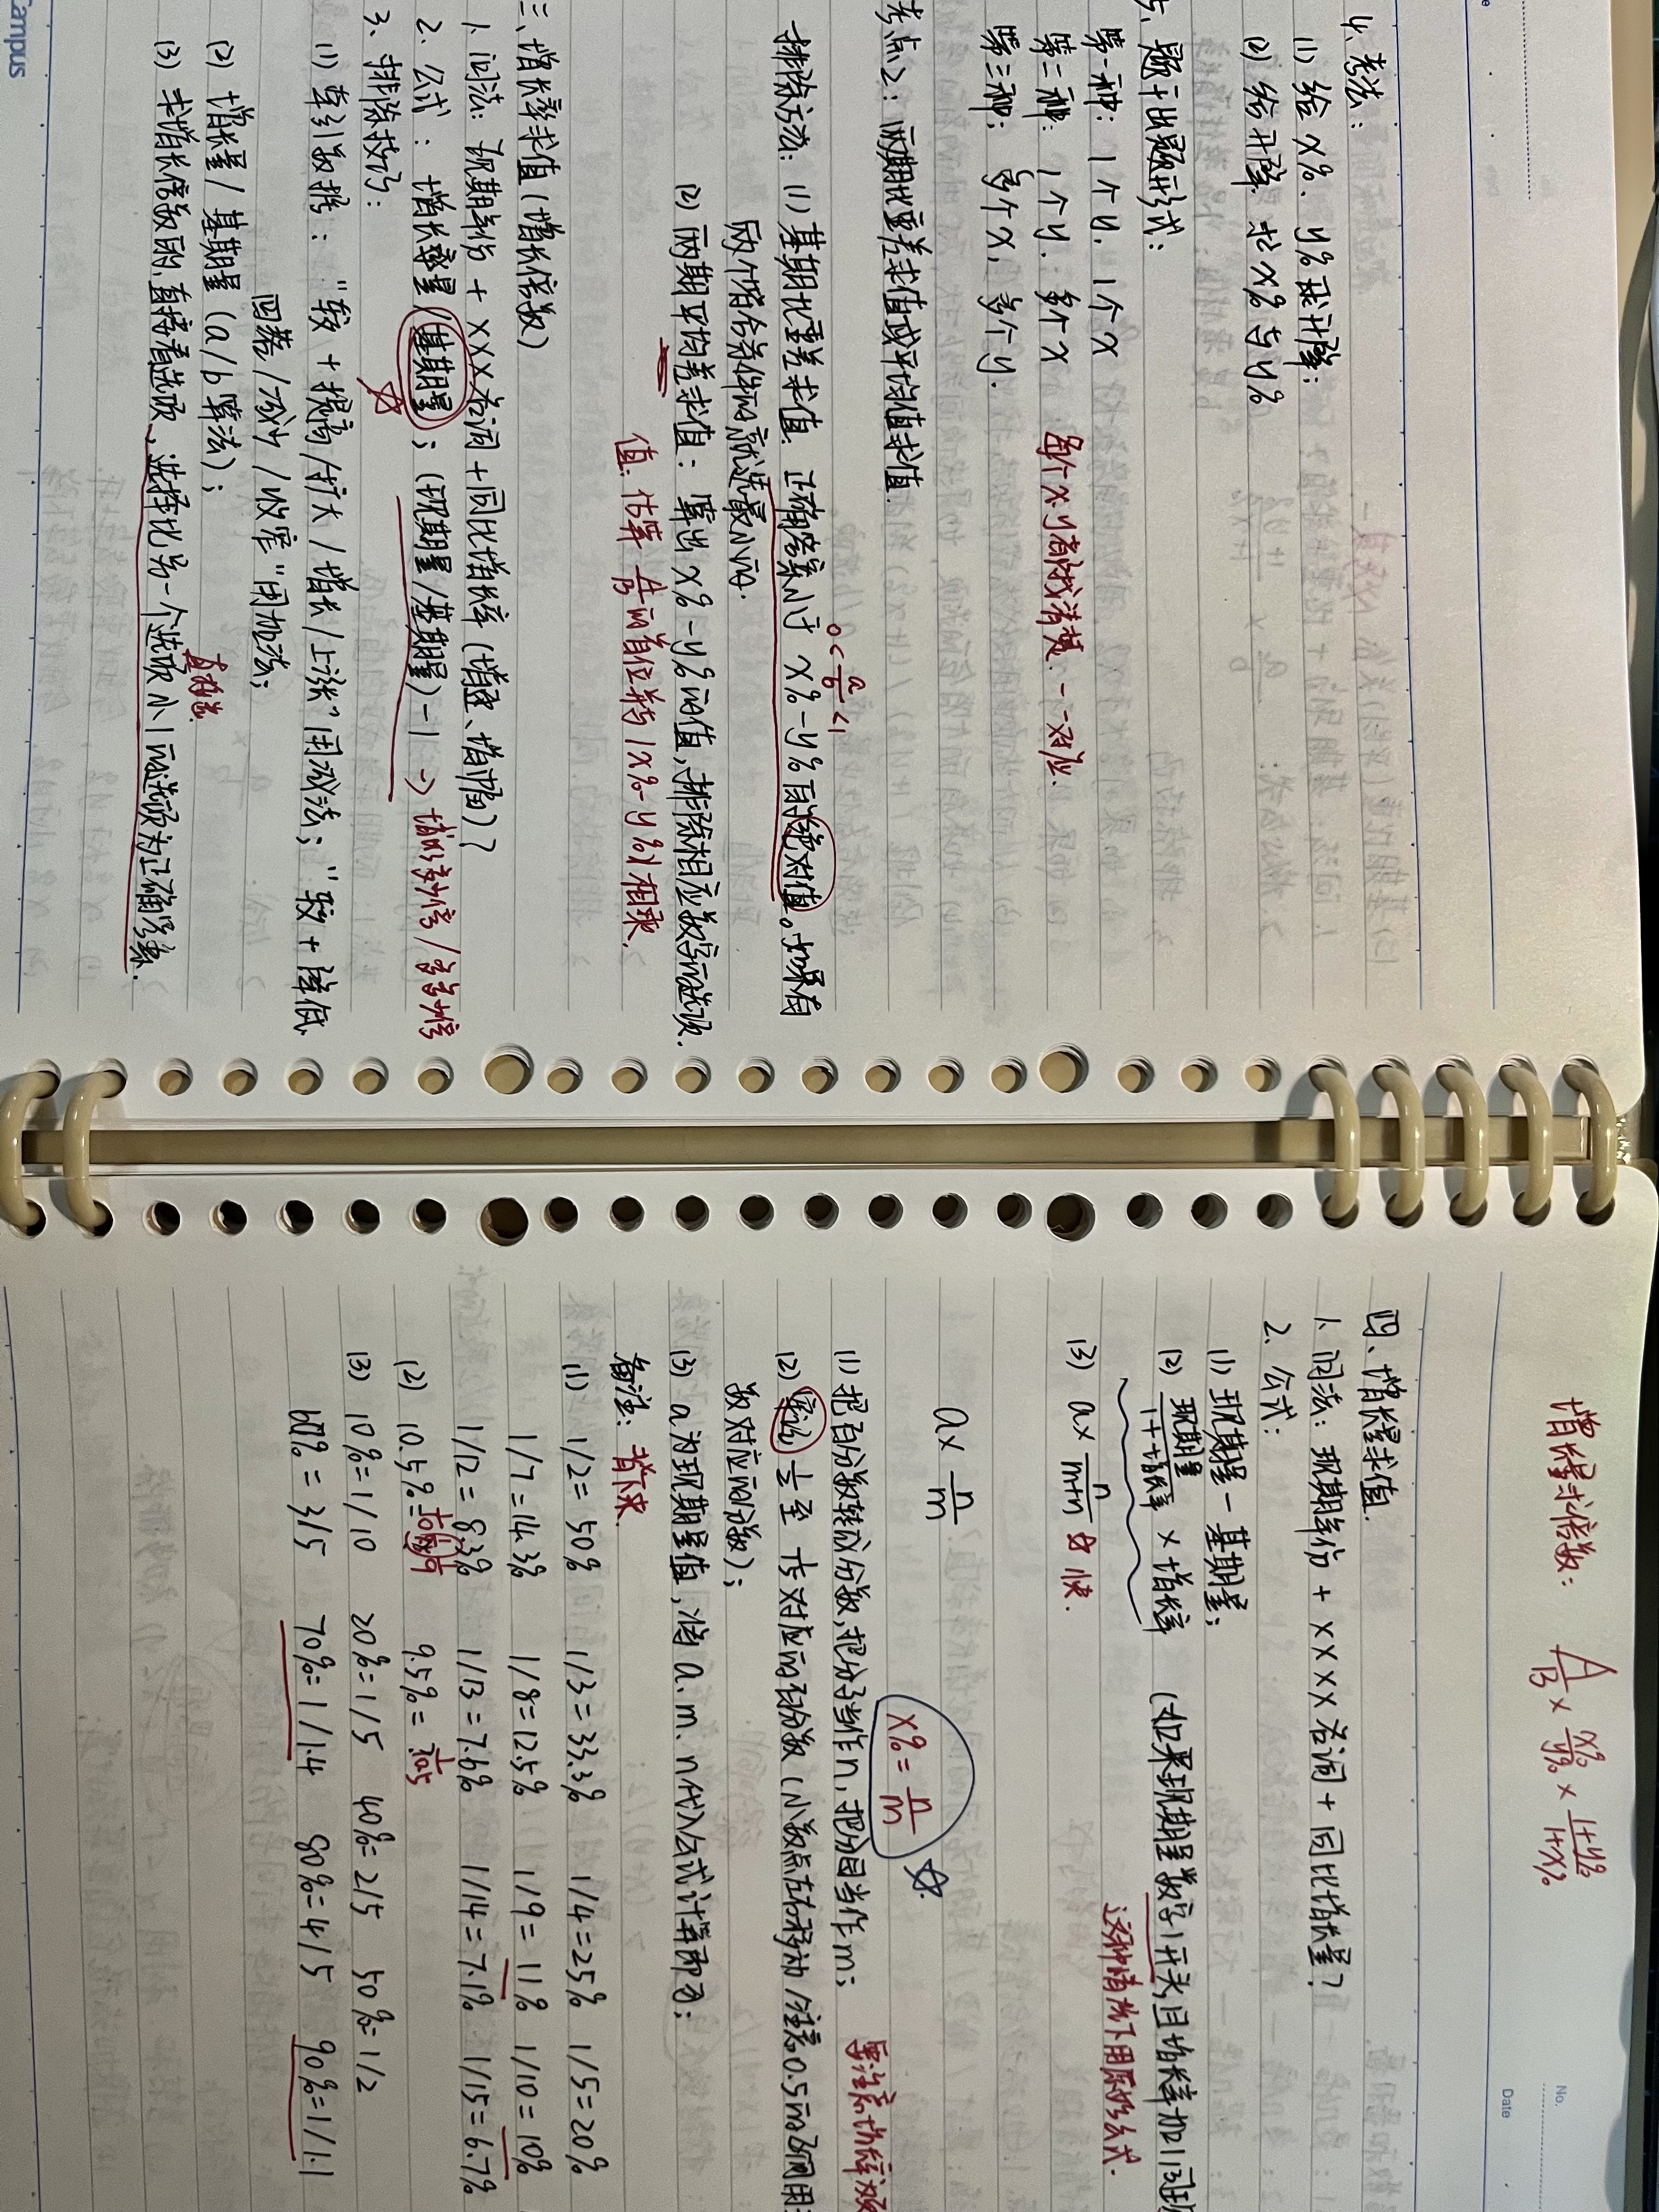 4、考法：
(1) 给 x%、y% 求升降；
(2) 给升降，求 x% 与 y%
五、题干出题形式：
第一种：1个y，1个x
第二种：1个y，多个x
第三种：多个x，多个y.
每个x，y都找清楚，一一对应.
考点2：两期比重差求值或平均值求值
排除方法：(1) 基期比重差求值，正确答案小于 x%-y% 的绝对值。如果有
0<a/b<1
两个塔合条件的就选最小的.
(2) 两期平均差求值：算出 x%-y% 的值，排除相应数字的选项.
值：估算 A/B 的首位再与 |x%-y%| 相乘.
三、增长率求值（增长倍数）
1、问法：现期年份 + XXX名词 + 同比增长率（增速、增幅）？
2、公式：增长量/基期量；(现期量/基期量)-1 → 增长多少倍/多多少倍
3、排除技巧：
(1) 牵引数据："较 + 提高/扩大/增长/上涨"用减法；"较 + 降低
回落/减少/收窄"用加法；
(2) 增长量/基期量（a/b算法）；
直接选
(3) 求增长倍数的，直接看选项，选择比另一个选项小1的选项为正确答案.
Campus
No.
Date
增长量求倍数：A/B × x%/y% × 1+y%/1+x%
四、增长量求值
1、问法：现期年份 + XXXX名词 + 同比增长量？
2、公式：
(1) 现期量 - 基期量；
(2) 现期量/1+增长率 × 增长率 （如果现期量数字1开头，且增长率加1
这种情况下用原始公式.
(3) a× n/m+n ☆ 快.
a× n/m
x% = n/m ☆
(1) 把百分数转成分数，把分子当作n，把分母当作m；
(2) 牢记 至 对应的百分数（小数点左右移动/注意0.5的
数对应的分数）；
(3) a为现期量值，将a、m、n代入公式计算即可；
备注：背下来
(1) 1/2 = 50% 1/3 = 33.3% 1/4 = 25% 1/5 = 20%
1/7 = 14.3% 1/8 = 12.5% 1/9 = 11% 1/10 = 10%
1/12 = 8.3% 1/13 = 7.6% 1/14 = 7.1% 1/15 = 6.7%
(2) 10.5% = 1/9.5 9.5% = 1/10.5
(3) 10% = 1/10 20% = 1/5 40% = 2/5 50% = 1/2
60% = 3/5 70% = 1/1.4 80% = 4/5 90% = 1/1.1